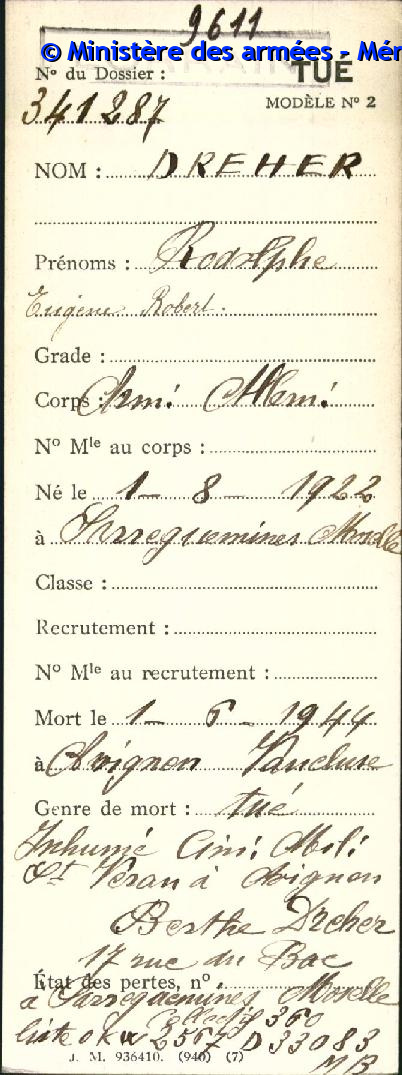 9611
© Ministère des armées - Mém
N° du Dossier : TUÉ
341287 MODÈLE N° 2
NOM : DREHER
Prénoms : Rodolphe
Eugène Robert.
Grade :
Corps : Armi Allemi
N° Mle au corps :
Né le 1 - 8 - 1922
à Sarreguemines Moselle
Classe :
Recrutement :
N° Mle au recrutement :
Mort le 1 - 6 - 1944
à Avignon Vaucluse
Genre de mort : tué
Inhumé Cimi Mili
St Véran à Avignon
Berthe Dreher
17 rue du Bac
État des pertes, n°
à Sarreguemines Moselle
Collectif 360
liste okw 2567 D 33083
J. M. 936410. (940) (7)
MB